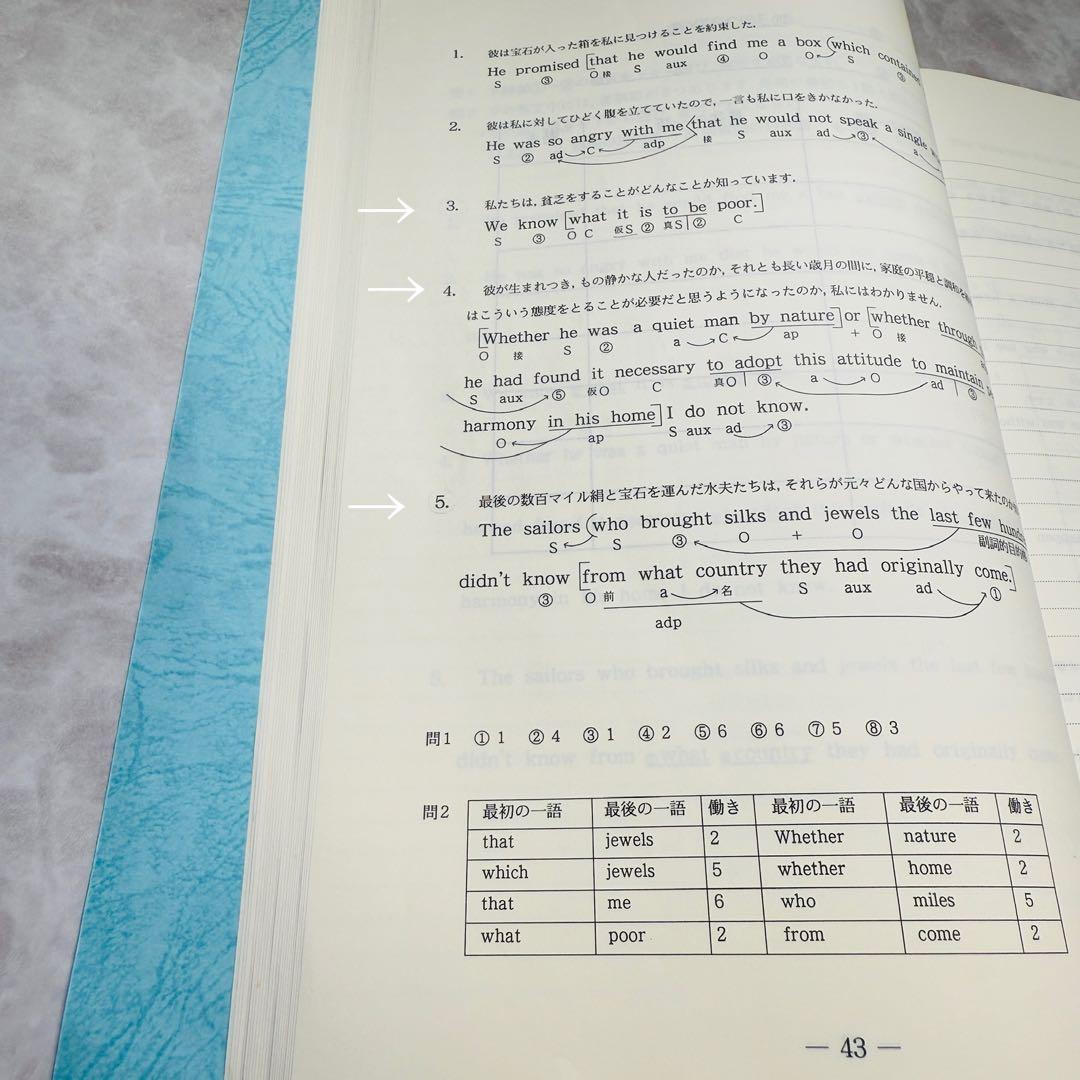 1. 彼は宝石が入った箱を私に見つけることを約束した.
He promised [that he would find me a box (which
S ③ O 接 S aux ④ O O S ③
2. 彼は私に対してひどく腹を立てていたので, 一言も私に口をきかなかった.
He was so angry with me that he would not speak a single
S ② ad C adp 接 S aux ad ③ a
3. 私たちは, 貧乏をすることがどんなことか知っています.
We know [what it is to be poor.]
S ③ O C 仮S ② 真S ② C
4. 彼が生まれつき, もの静かな人だったのか, それとも長い歳月の間に, 家庭の平穏と調和を
はこういう態度をとることが必要だと思うようになったのか, 私にはわかりません.
[Whether he was a quiet man by nature] or [whether through
O 接 S ② a C ap + O 接
he had found it necessary to adopt this attitude to maintain
S aux ⑤ 仮O C 真O ③ a O ad ③
harmony in his home] I do not know.
O ap S aux ad ③
5. 最後の数百マイル絹と宝石を運んだ水夫たちは, それらが元々どんな国からやって来たのか
The sailors (who brought silks and jewels the last few
S S ③ O + O 副詞的目的格
didn't know [from what country they had originally come.]
③ O 前 a 名 S aux ad ①
adp
問1 ① 1 ② 4 ③ 1 ④ 2 ⑤ 6 ⑥ 6 ⑦ 5 ⑧ 3
問2 最初の一語 最後の一語 働き 最初の一語 最後の一語 働き
that jewels 2 Whether nature 2
which jewels 5 whether home 2
that me 6 who miles 5
what poor 2 from come 2
— 43 —